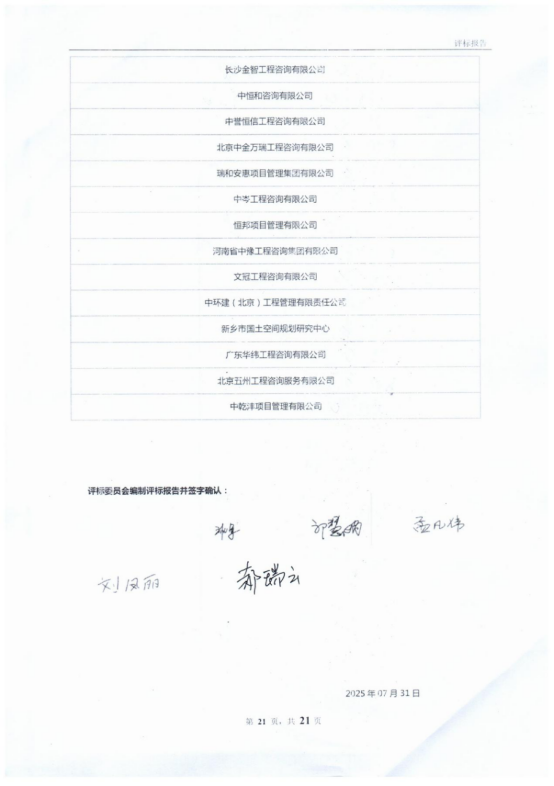 评标报告
长沙金智工程咨询有限公司
中恒和咨询有限公司
中誉恒信工程咨询有限公司
北京中金万瑞工程咨询有限公司
瑞和安惠项目管理集团有限公司
中岑工程咨询有限公司
恒邦项目管理有限公司
河南省中豫工程咨询集团有限公司
文冠工程咨询有限公司
中环建（北京）工程管理有限责任公司
新乡市国土空间规划研究中心
广东华纬工程咨询有限公司
北京五州工程咨询服务有限公司
中乾沣项目管理有限公司
评标委员会编制评标报告并签字确认：
孟凡伟
刘凤丽 郝瑞云
2025 年 07 月 31 日
第 21 页，共 21 页